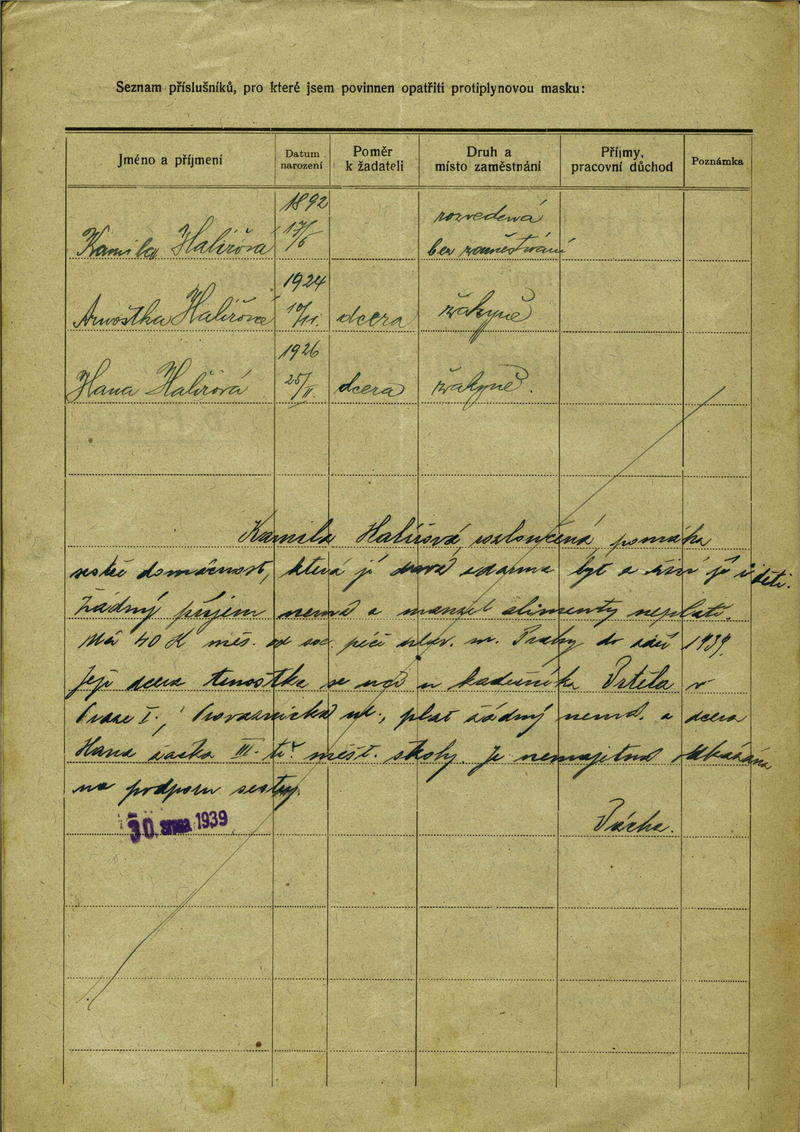 Seznam příslušníků, pro které jsem povinnen opatřiti protiplynovou masku:
Jméno a příjmení
Datum narození
Poměr k žadateli
Druh a místo zaměstnání
Příjmy, pracovní důchod
Poznámka
Kamila Halířová 1892 17/6 rozvedená bez zaměstnání
Arnoštka Halířová 1924 10/11. dcera žákyně
Hana Halířová 1926 25/II. dcera žákyně.
Kamila Halířová, rozloučená, pomáhá
sestře domácnost, která jí zdarma byt a živí jí i děti.
Žádný příjem nemá a manžel alimenty neplatí.
Má 40 K měs. od soc. péče hlav. m. Prahy do září 1939.
Její dcera Arnoštka se učí u kadeřníka v
Praze I., Provaznická ul., plat žádný nemá a dcera
Hana žačka III. tř. měšť. školy. Je nemajetná odkázána
na podporu sestry.
30. srpna 1939